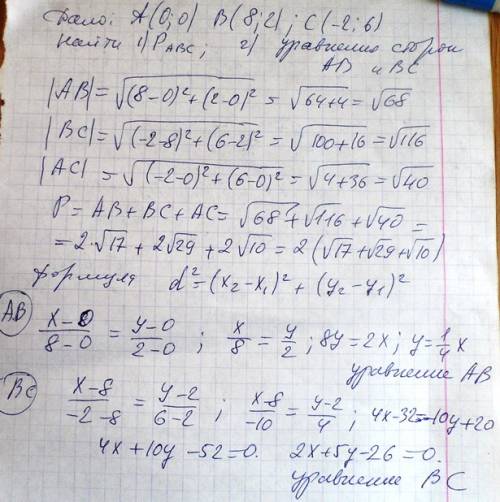 Дано: A(0;0) B(8;2); C(-2;6)
Найти 1) P_ABC; 2) уравнение сторон
AB и BC
|AB| = √((8-0)²+(2-0)²) = √(64+4) = √68
|BC| = √((-2-8)²+(6-2)²) = √(100+16) = √116
|AC| = √((-2-0)²+(6-0)²) = √(4+36) = √40
P = AB + BC + AC = √68 + √116 + √40 =
= 2·√17 + 2√29 + 2√10 = 2(√17+√29+√10)
формула d² = (x₂-x₁)² + (y₂-y₁)²
AB (x-0)/(8-0) = (y-0)/(2-0); x/8 = y/2; 8y = 2x; y = 1/4 x
уравнение AB
BC (x-8)/(-2-8) = (y-2)/(6-2); (x-8)/(-10) = (y-2)/4; 4x-32=-10y+20
4x+10y-52=0. 2x+5y-26=0.
уравнение BC